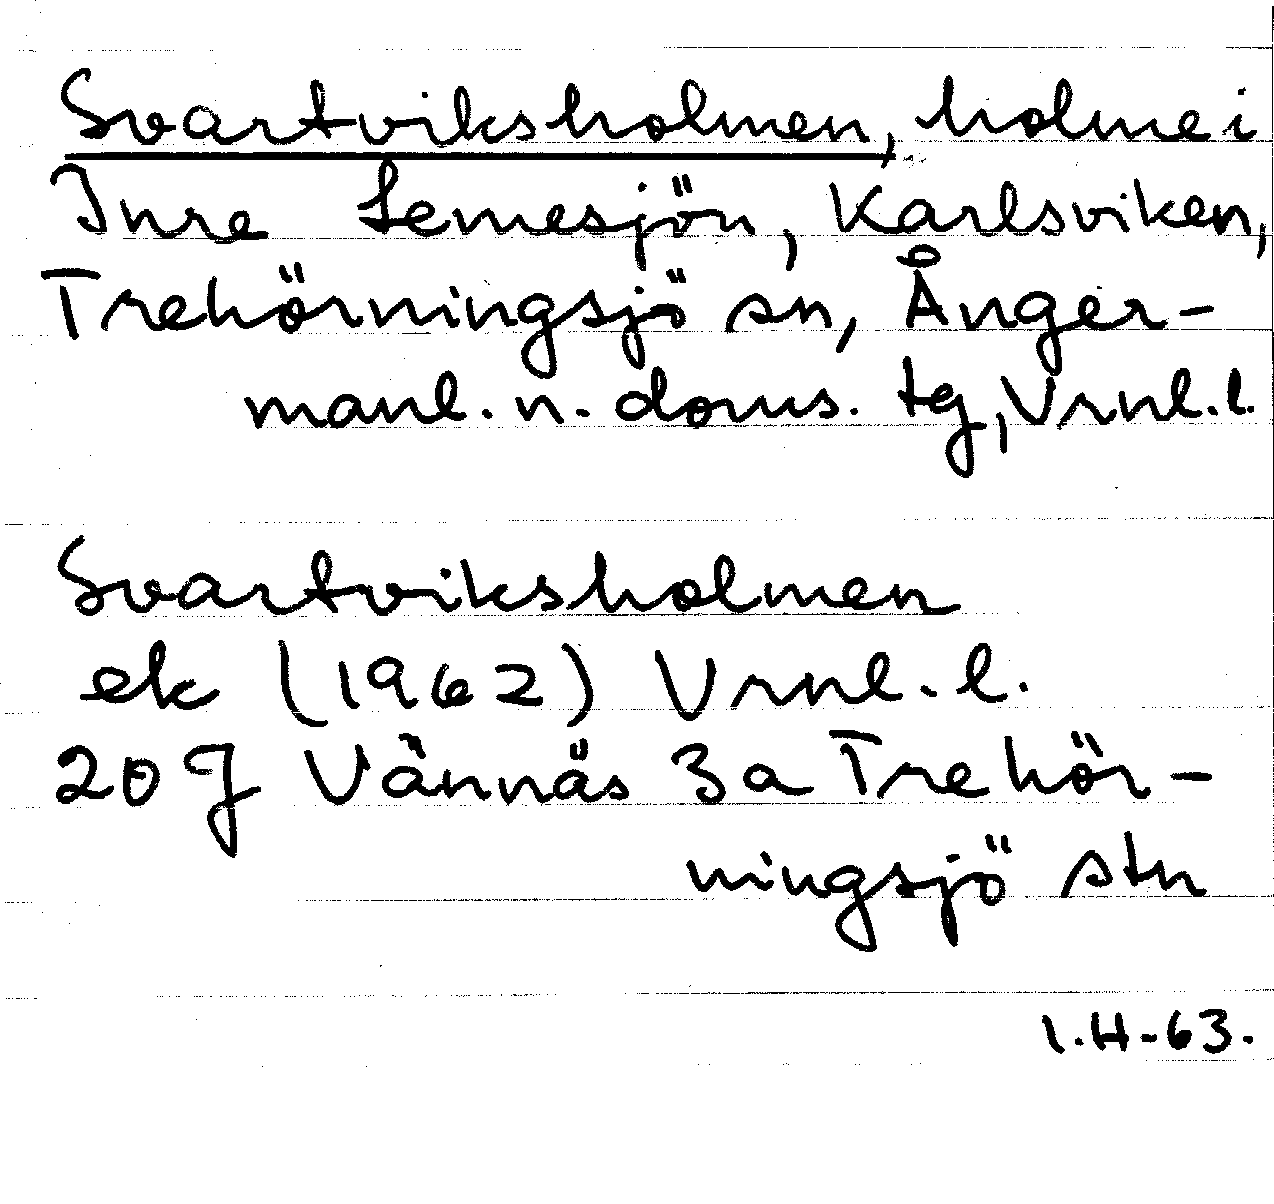 Svartviksholmen, holme i
Inre Lemesjön, Karlsviken,
Trehörningsjö sn, Ånger-
manl. n. doms. tg, Vrnl. l.
Svartviksholmen
ek (1962) Vrnl. l.
20 J Vännäs 3a Trehör-
ningsjö stn
I.H-63.